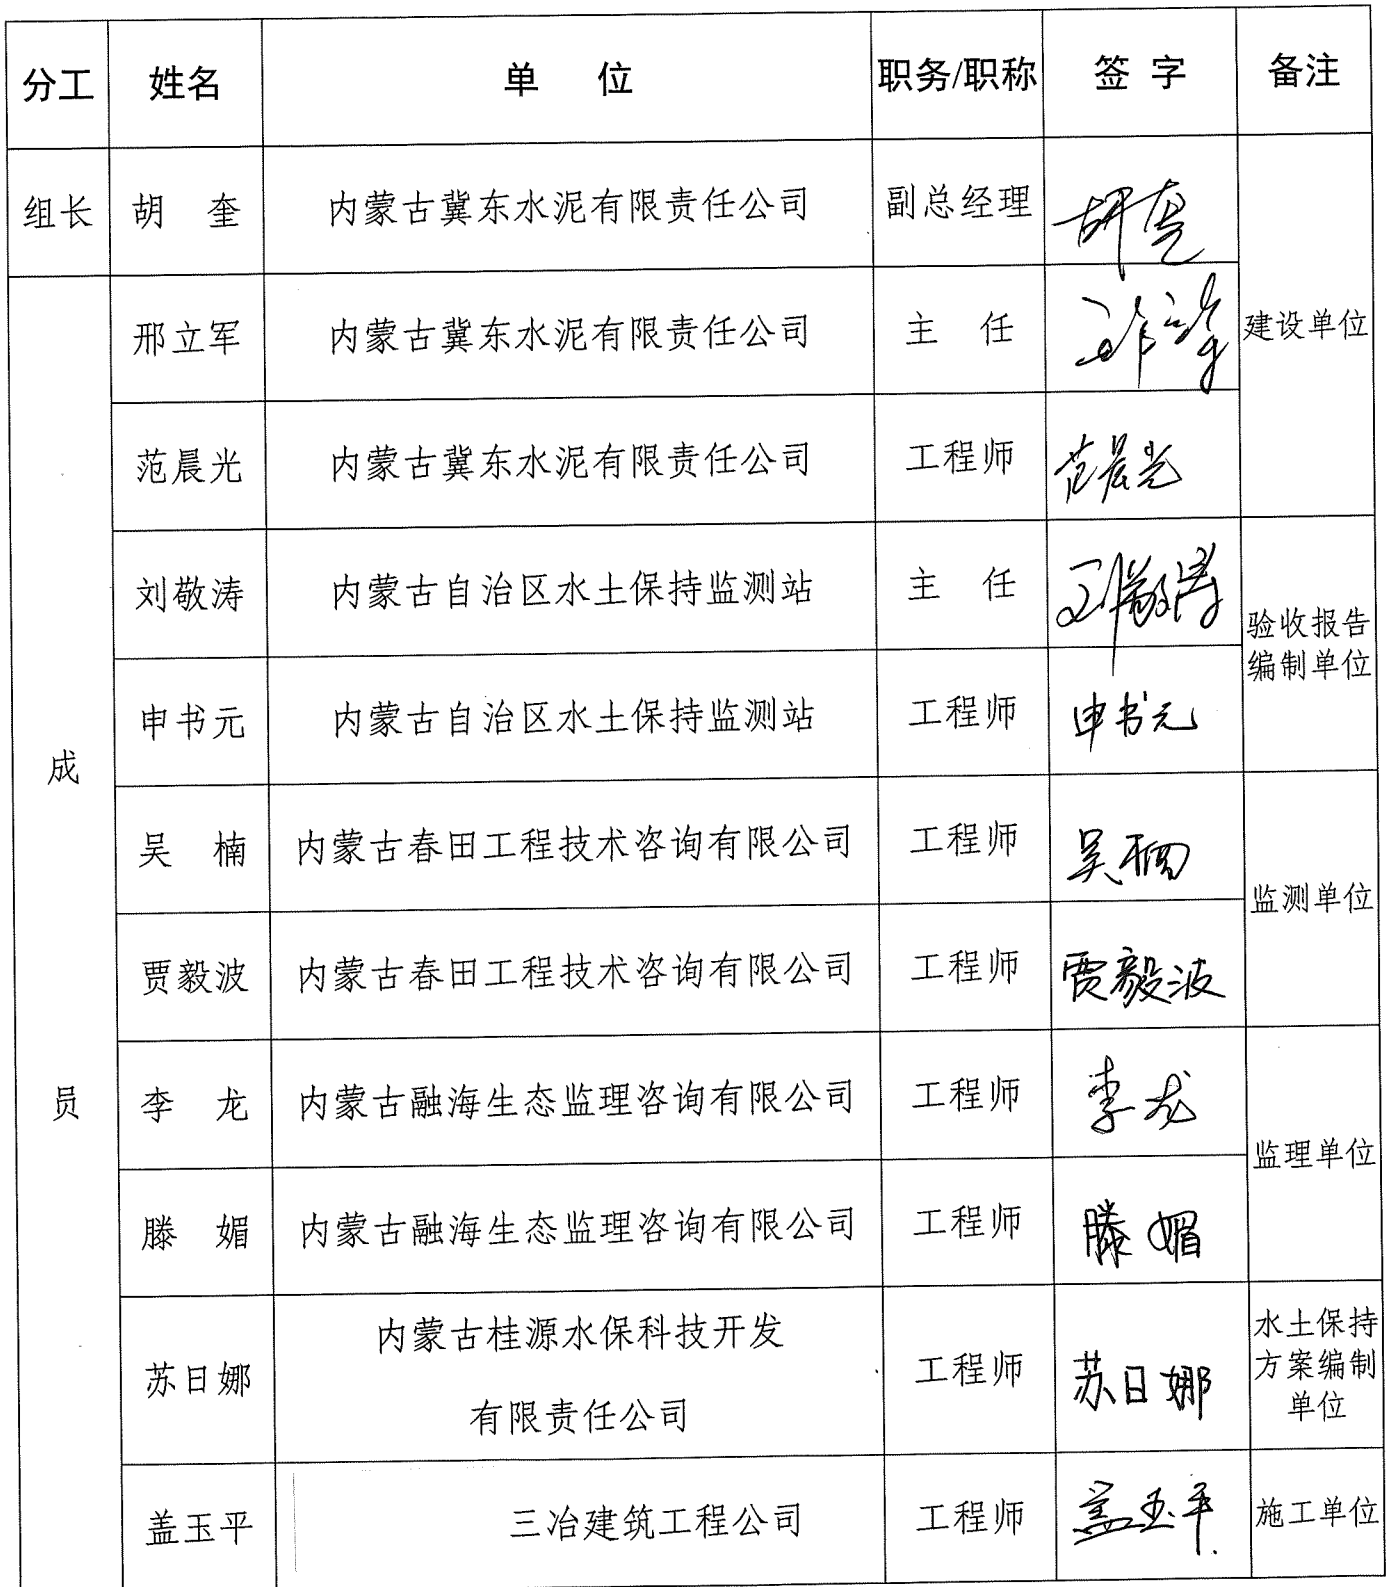 分工 姓名 单 位 职务/职称 签 字 备注
组长 胡 奎 内蒙古冀东水泥有限责任公司 副总经理 胡奎
邢立军 内蒙古冀东水泥有限责任公司 主 任 邢立军 建设单位
范晨光 内蒙古冀东水泥有限责任公司 工程师 范晨光
刘敬涛 内蒙古自治区水土保持监测站 主 任 刘敬涛
验收报告
编制单位
申书元 内蒙古自治区水土保持监测站 工程师 申书元
成
吴 楠 内蒙古春田工程技术咨询有限公司 工程师 吴楠
监测单位
贾毅波 内蒙古春田工程技术咨询有限公司 工程师 贾毅波
员 李 龙 内蒙古融海生态监理咨询有限公司 工程师 李龙
监理单位
滕 媚 内蒙古融海生态监理咨询有限公司 工程师 滕媚
苏日娜 内蒙古桂源水保科技开发
有限责任公司 工程师 苏日娜
水土保持
方案编制
单位
盖玉平 三冶建筑工程公司 工程师 盖玉平 施工单位